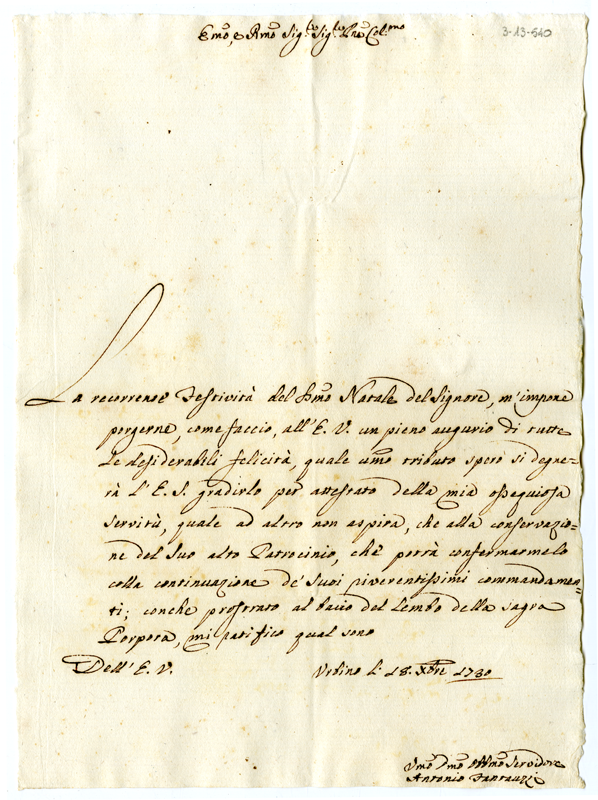 Emo, e Rmo Sig.re Sig.re Pne Col.mo
3-13-540
La recorrente Festività del Smo Natale del Signore, m'impone
porgerne, come faccio, all'E. V. un pieno augurio di tutte
le desiderabili felicità, quale umo tributo spero si degne=
rà l'E. S. gradirlo per attestato della mia ossequiosa
servitù, quale ad altro non aspira, che alla conservazio=
ne del Suo alto Patrocinio, che potrà confermarmelo
colla continuazione de' Suoi riveritissimi commandamen=
ti; conche prostrato al bacio del Lembo della Sagra
Porpora, mi ratifico qual sono
Dell'E. V.
Urbino li 18. Xbre 1730
Umo Dmo Obbmo Servidore
Antonio Fantauzzi